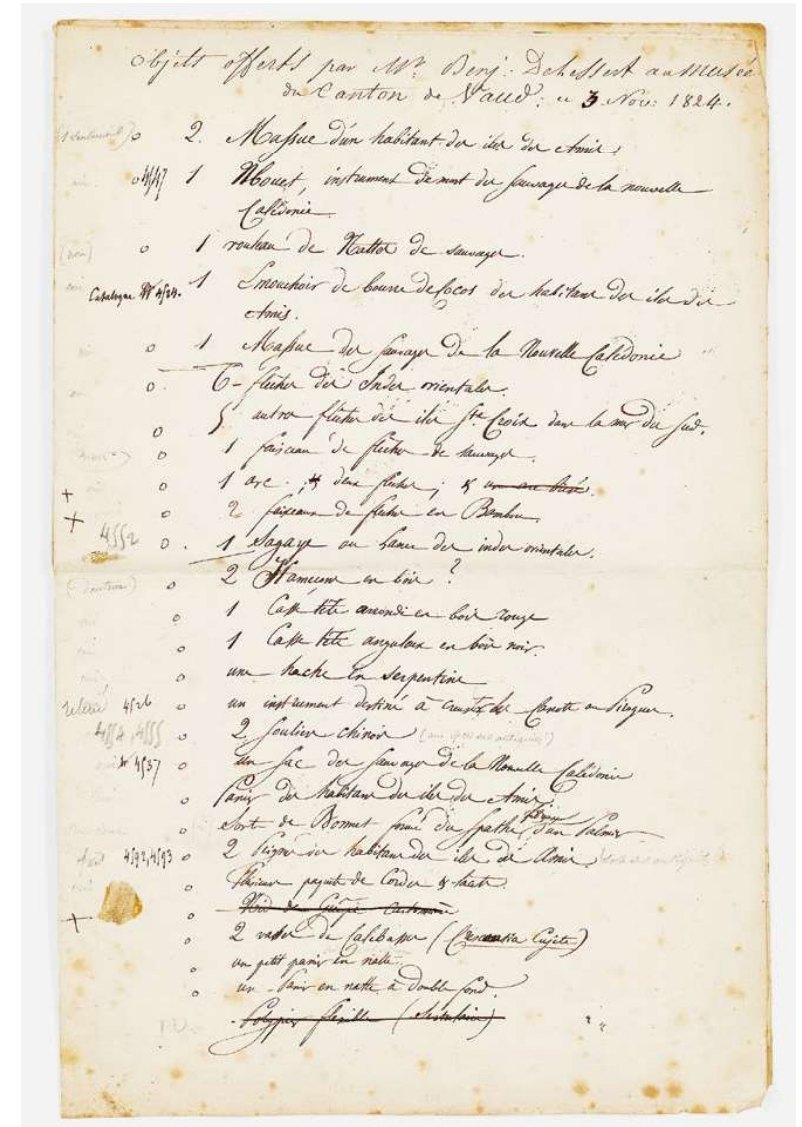 Objets offerts par Mr. Benj: Delessert au Musée
du Canton de Vaud; le 3 Nov: 1824.
o 2. Massue d'un habitant des iles des Amis.
o 4547 1 Mouet, instrument de mort des sauvages de la nouvelle
Calédonie
(non) o 1 rouleau de Nattes de sauvages.
Catalogue No 4524. 1 Emouchoir de bourre de Cocos des habitans des iles des
Amis.
o 1 Massue des sauvages de la Nouvelle Calédonie
o. 6 - fleches des Indes orientales.
o 5 autres fleches des iles Ste Croix dans la mer du Sud.
o 1 faisceau de fleches de sauvages.
+ o 1 arc. ; & deux fleches ; &
+ o 2 faisceaux de fleches en Bambou.
4552 o. 1 Sagaye ou Lance des indes orientales.
(douteux) o 2 Hameçons en bois ?
o 1 Casse tête arrondi en bois rouge
o 1 Casse tête anguleux en bois noir.
o une hache en serpentine
4526 o un instrument destiné à creuser les Canots ou Pirogues.
4554, 4555 o 2 souliers chinois
4537 o un sac des sauvages de la Nouvelle Calédonie
o Panier des habitans des iles des Amis.
o sorte de Bonnet formé du spathe d'un Palmier
4592, 4593 o 2 Peignes des habitans des iles des Amis.
o Plusieurs paquets de Cordes &
+ Nid de Guêpe
o 2 vases de Calebasses (Crescentia Cujete)
o un petit panier en natte
o un Panier en natte à double fond.
Polypier flexible (Sertulaire)